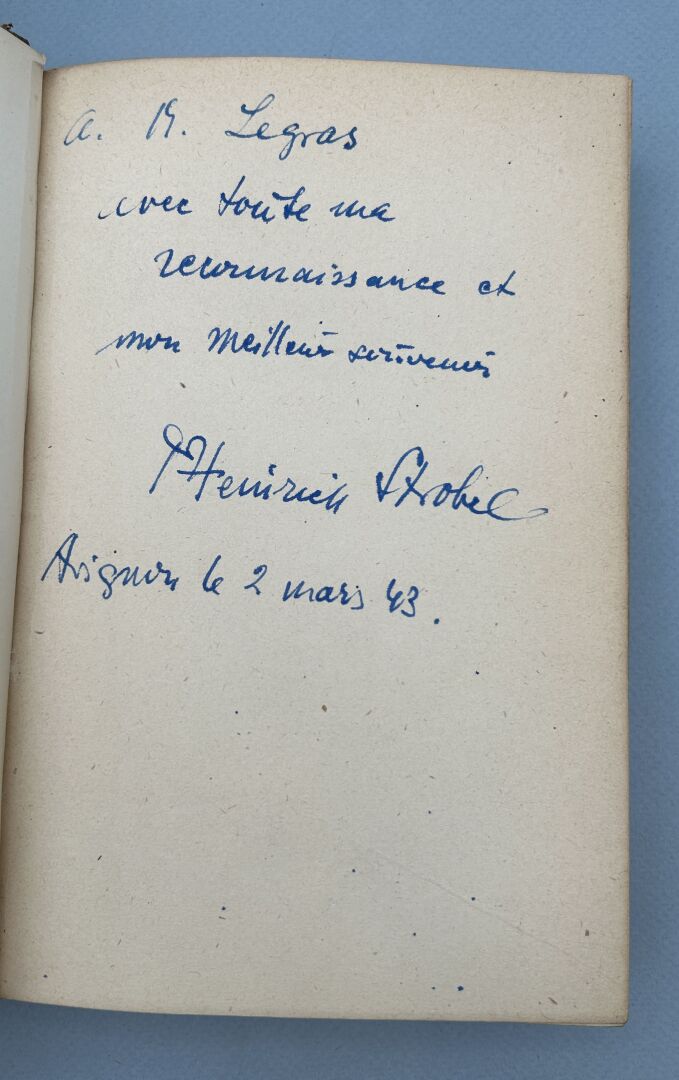 a. M. Legras
avec toute ma
reconnaissance et
mon meilleur souvenir
Heinrich Strobel
Avignon le 2 mars 43.